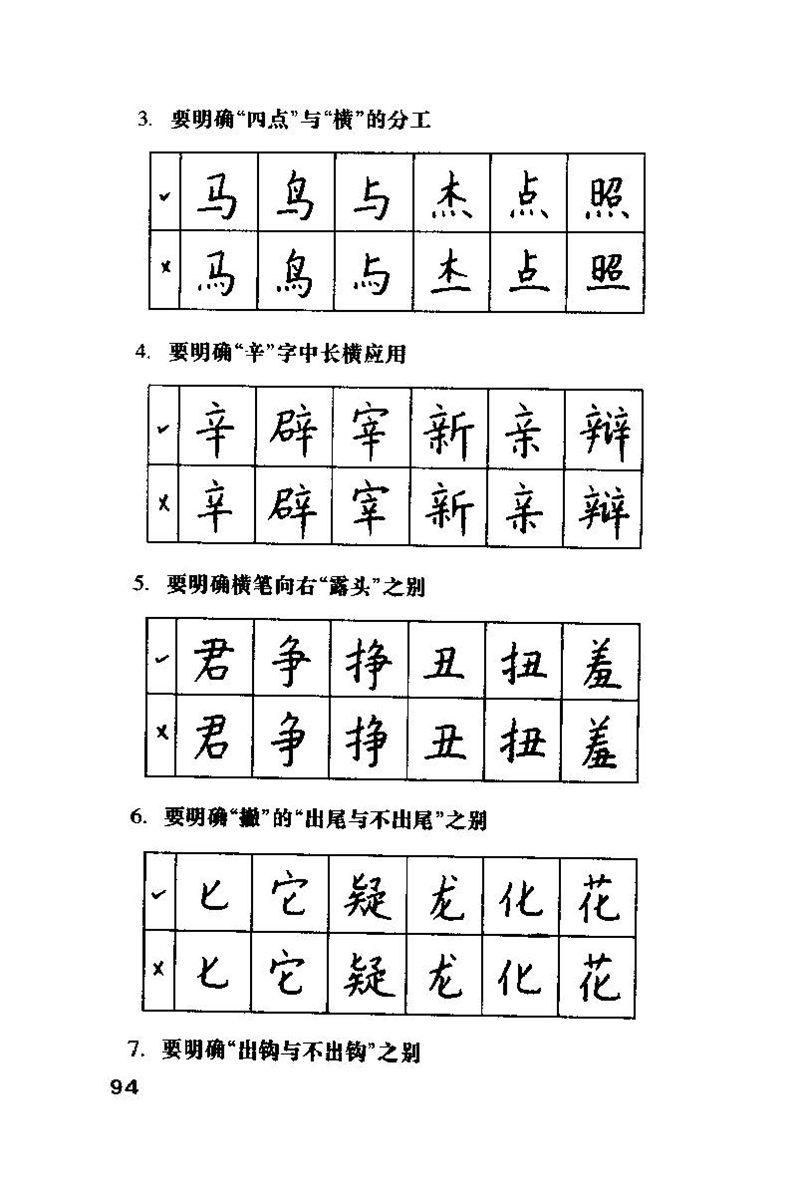 3. 要明确“四点”与“横”的分工
✓ 马 鸟 与 杰 点 照
× 马 鸟 与 杰 点 照
4. 要明确“辛”字中长横应用
✓ 辛 辟 宰 新 亲 辩
× 辛 辟 宰 新 亲 辩
5. 要明确横笔向右“露头”之别
✓ 君 争 挣 丑 扭 羞
× 君 争 挣 丑 扭 羞
6. 要明确“撇”的“出尾与不出尾”之别
✓ 匕 它 疑 龙 化 花
× 匕 它 疑 龙 化 花
7. 要明确“出钩与不出钩”之别
94